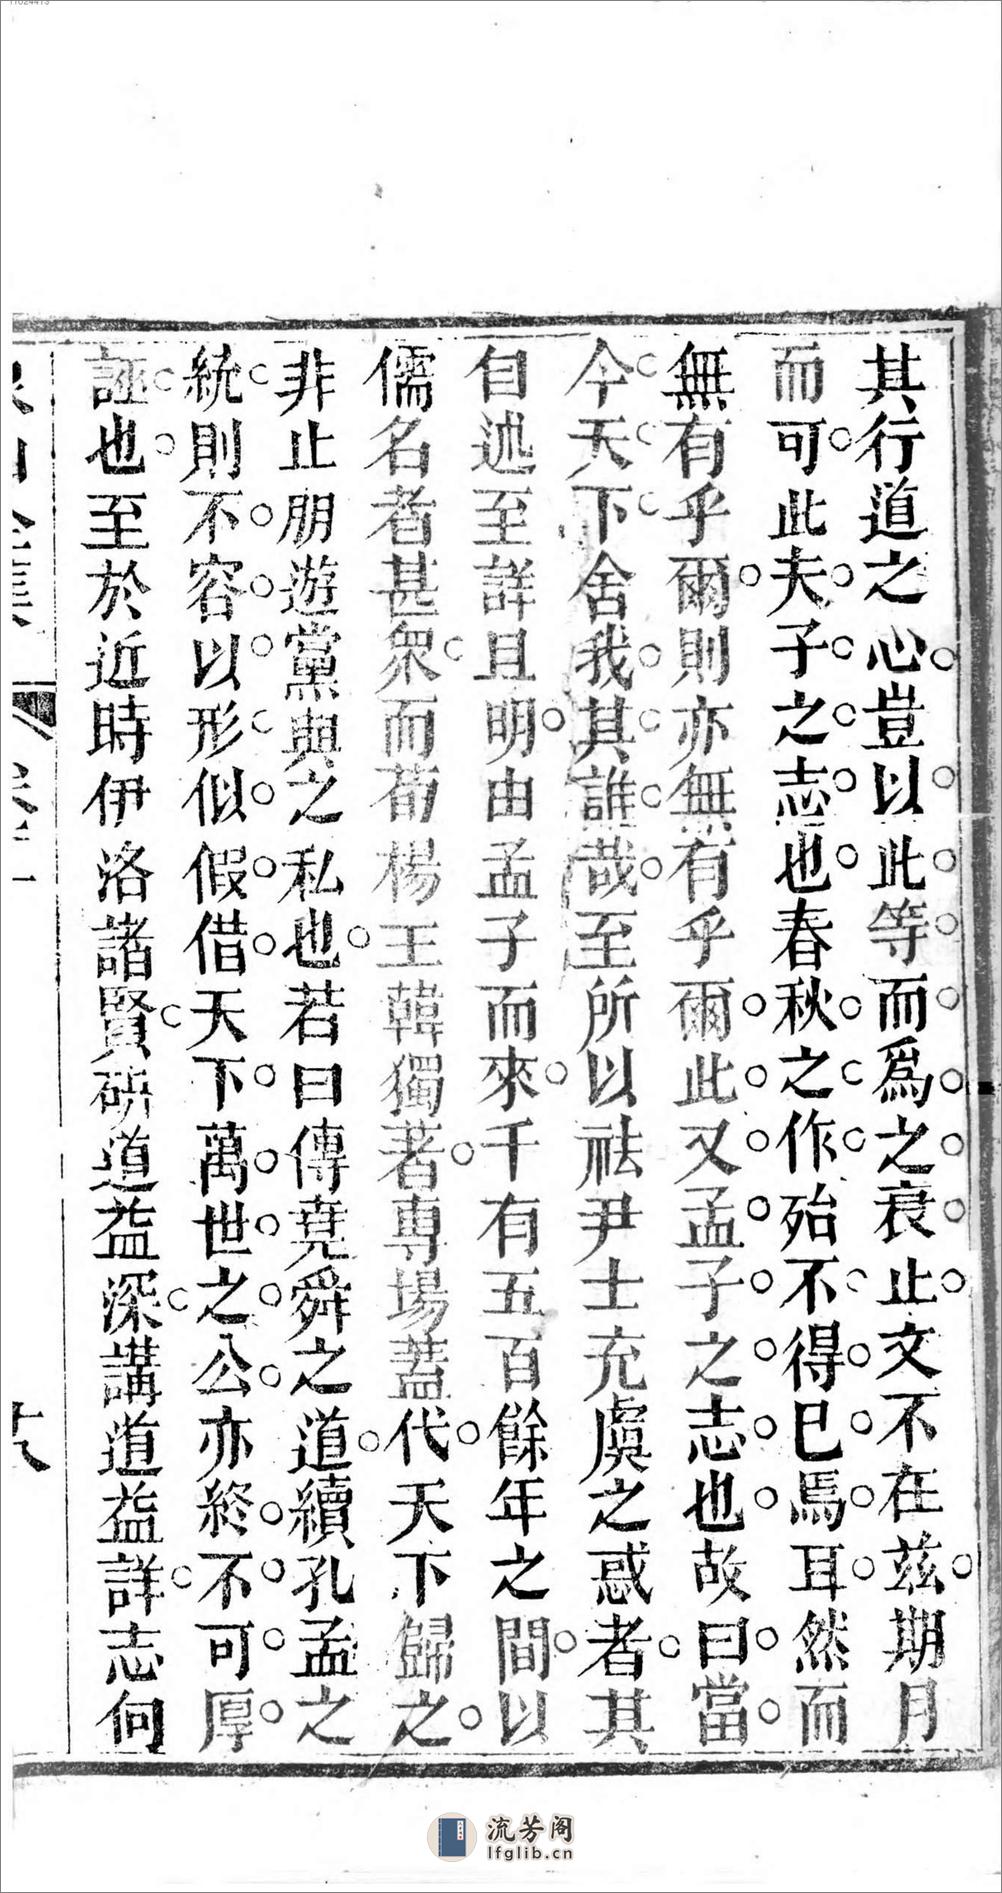 其行道之心豈以此等而爲之衰止文不在茲期月
而可此夫子之志也春秋之作殆不得已焉耳然而
無有乎爾則亦無有乎爾此又孟子之志也故曰當
今天下舍我其誰哉至所以祛尹士充虞之惑者其
自述至詳且明由孟子而來千有五百餘年之間以
儒名者甚衆而荀楊王韓獨著專場蓋代天下歸之
非止朋遊黨與之私也若曰傳堯舜之道續孔孟之
統則不容以形似假借天下萬世之公亦終不可厚
誣也至於近時伊洛諸賢研道益深講道益詳志向
流芳阁
lfglib.cn